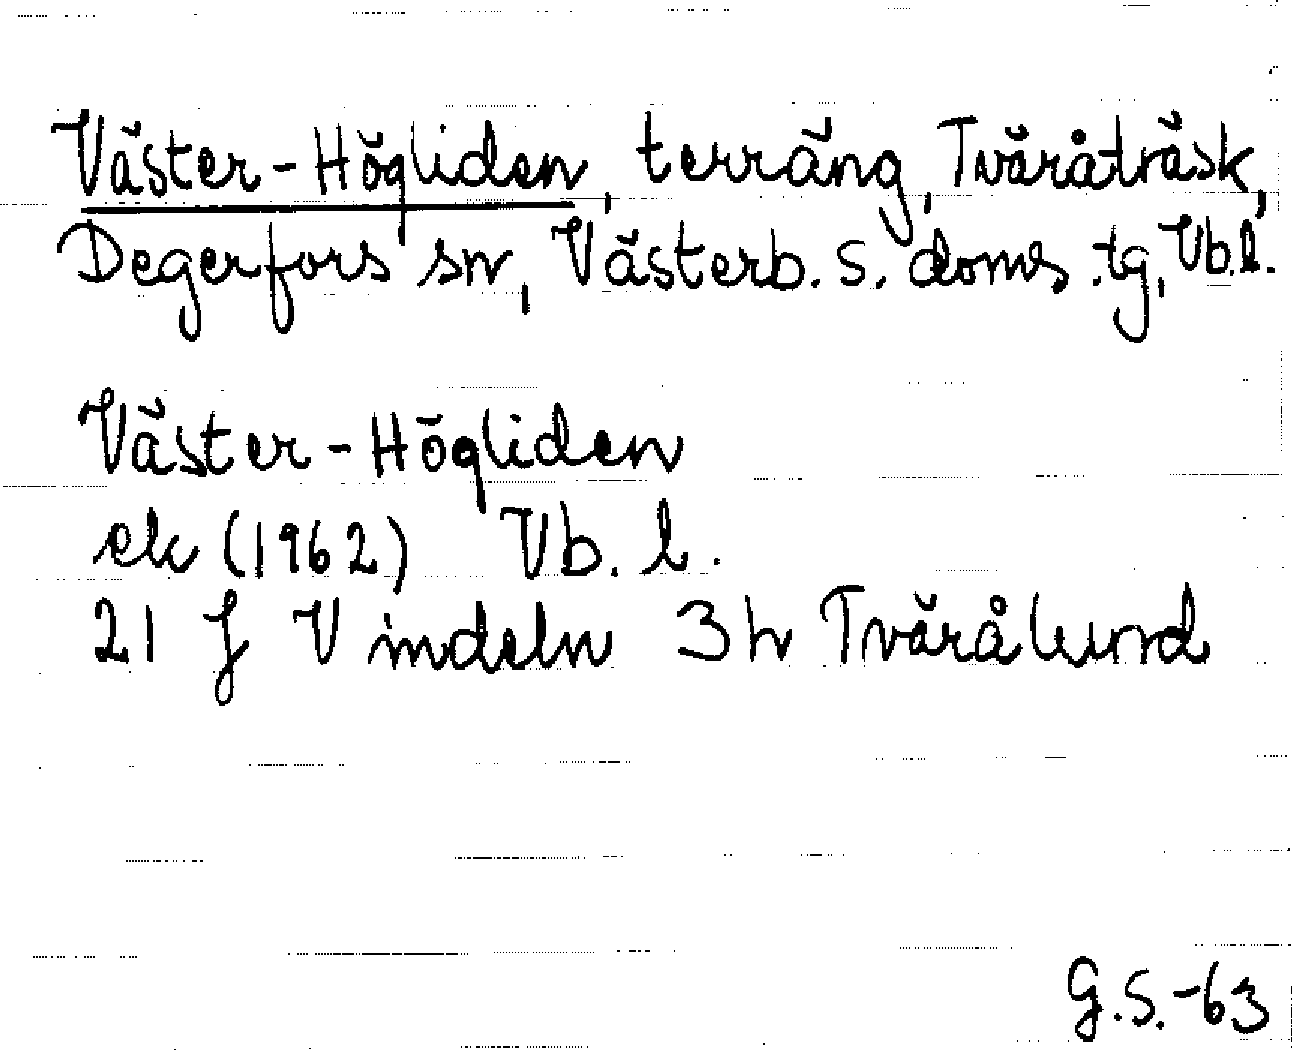 Väster-Högliden, terräng, Tväråträsk,
Degerfors sn, Västerb. s. doms.tg, Vb.l.
Väster-Högliden
ek (1962) Vb. l.
21 J Vindeln 3h Tvärålund
G.S.-63